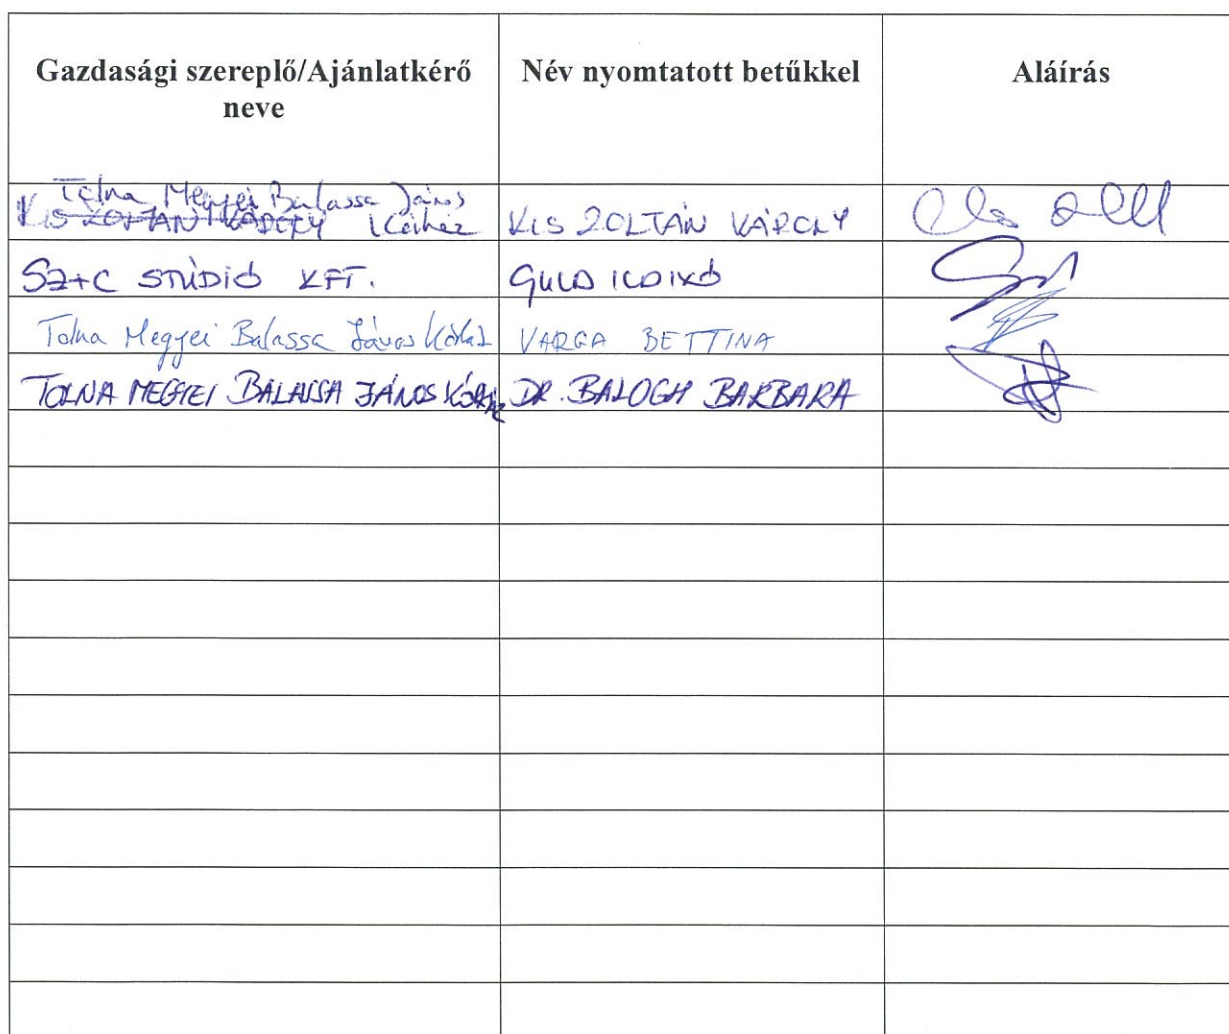 Gazdasági szereplő/Ajánlatkérő neve
Név nyomtatott betűkkel
Aláírás
Tolna Megyei Balassa János
KIS ZOLTÁN KÁROLY Kórház
KIS ZOLTÁN KÁROLY
SZ+C STÚDIÓ KFT.
GULD ILDIKÓ
Tolna Megyei Balassa János Kórház
VARGA BETTINA
TOLNA MEGYEI BALASSA JÁNOS KÓRHÁZ
DR. BALOGH BARBARA